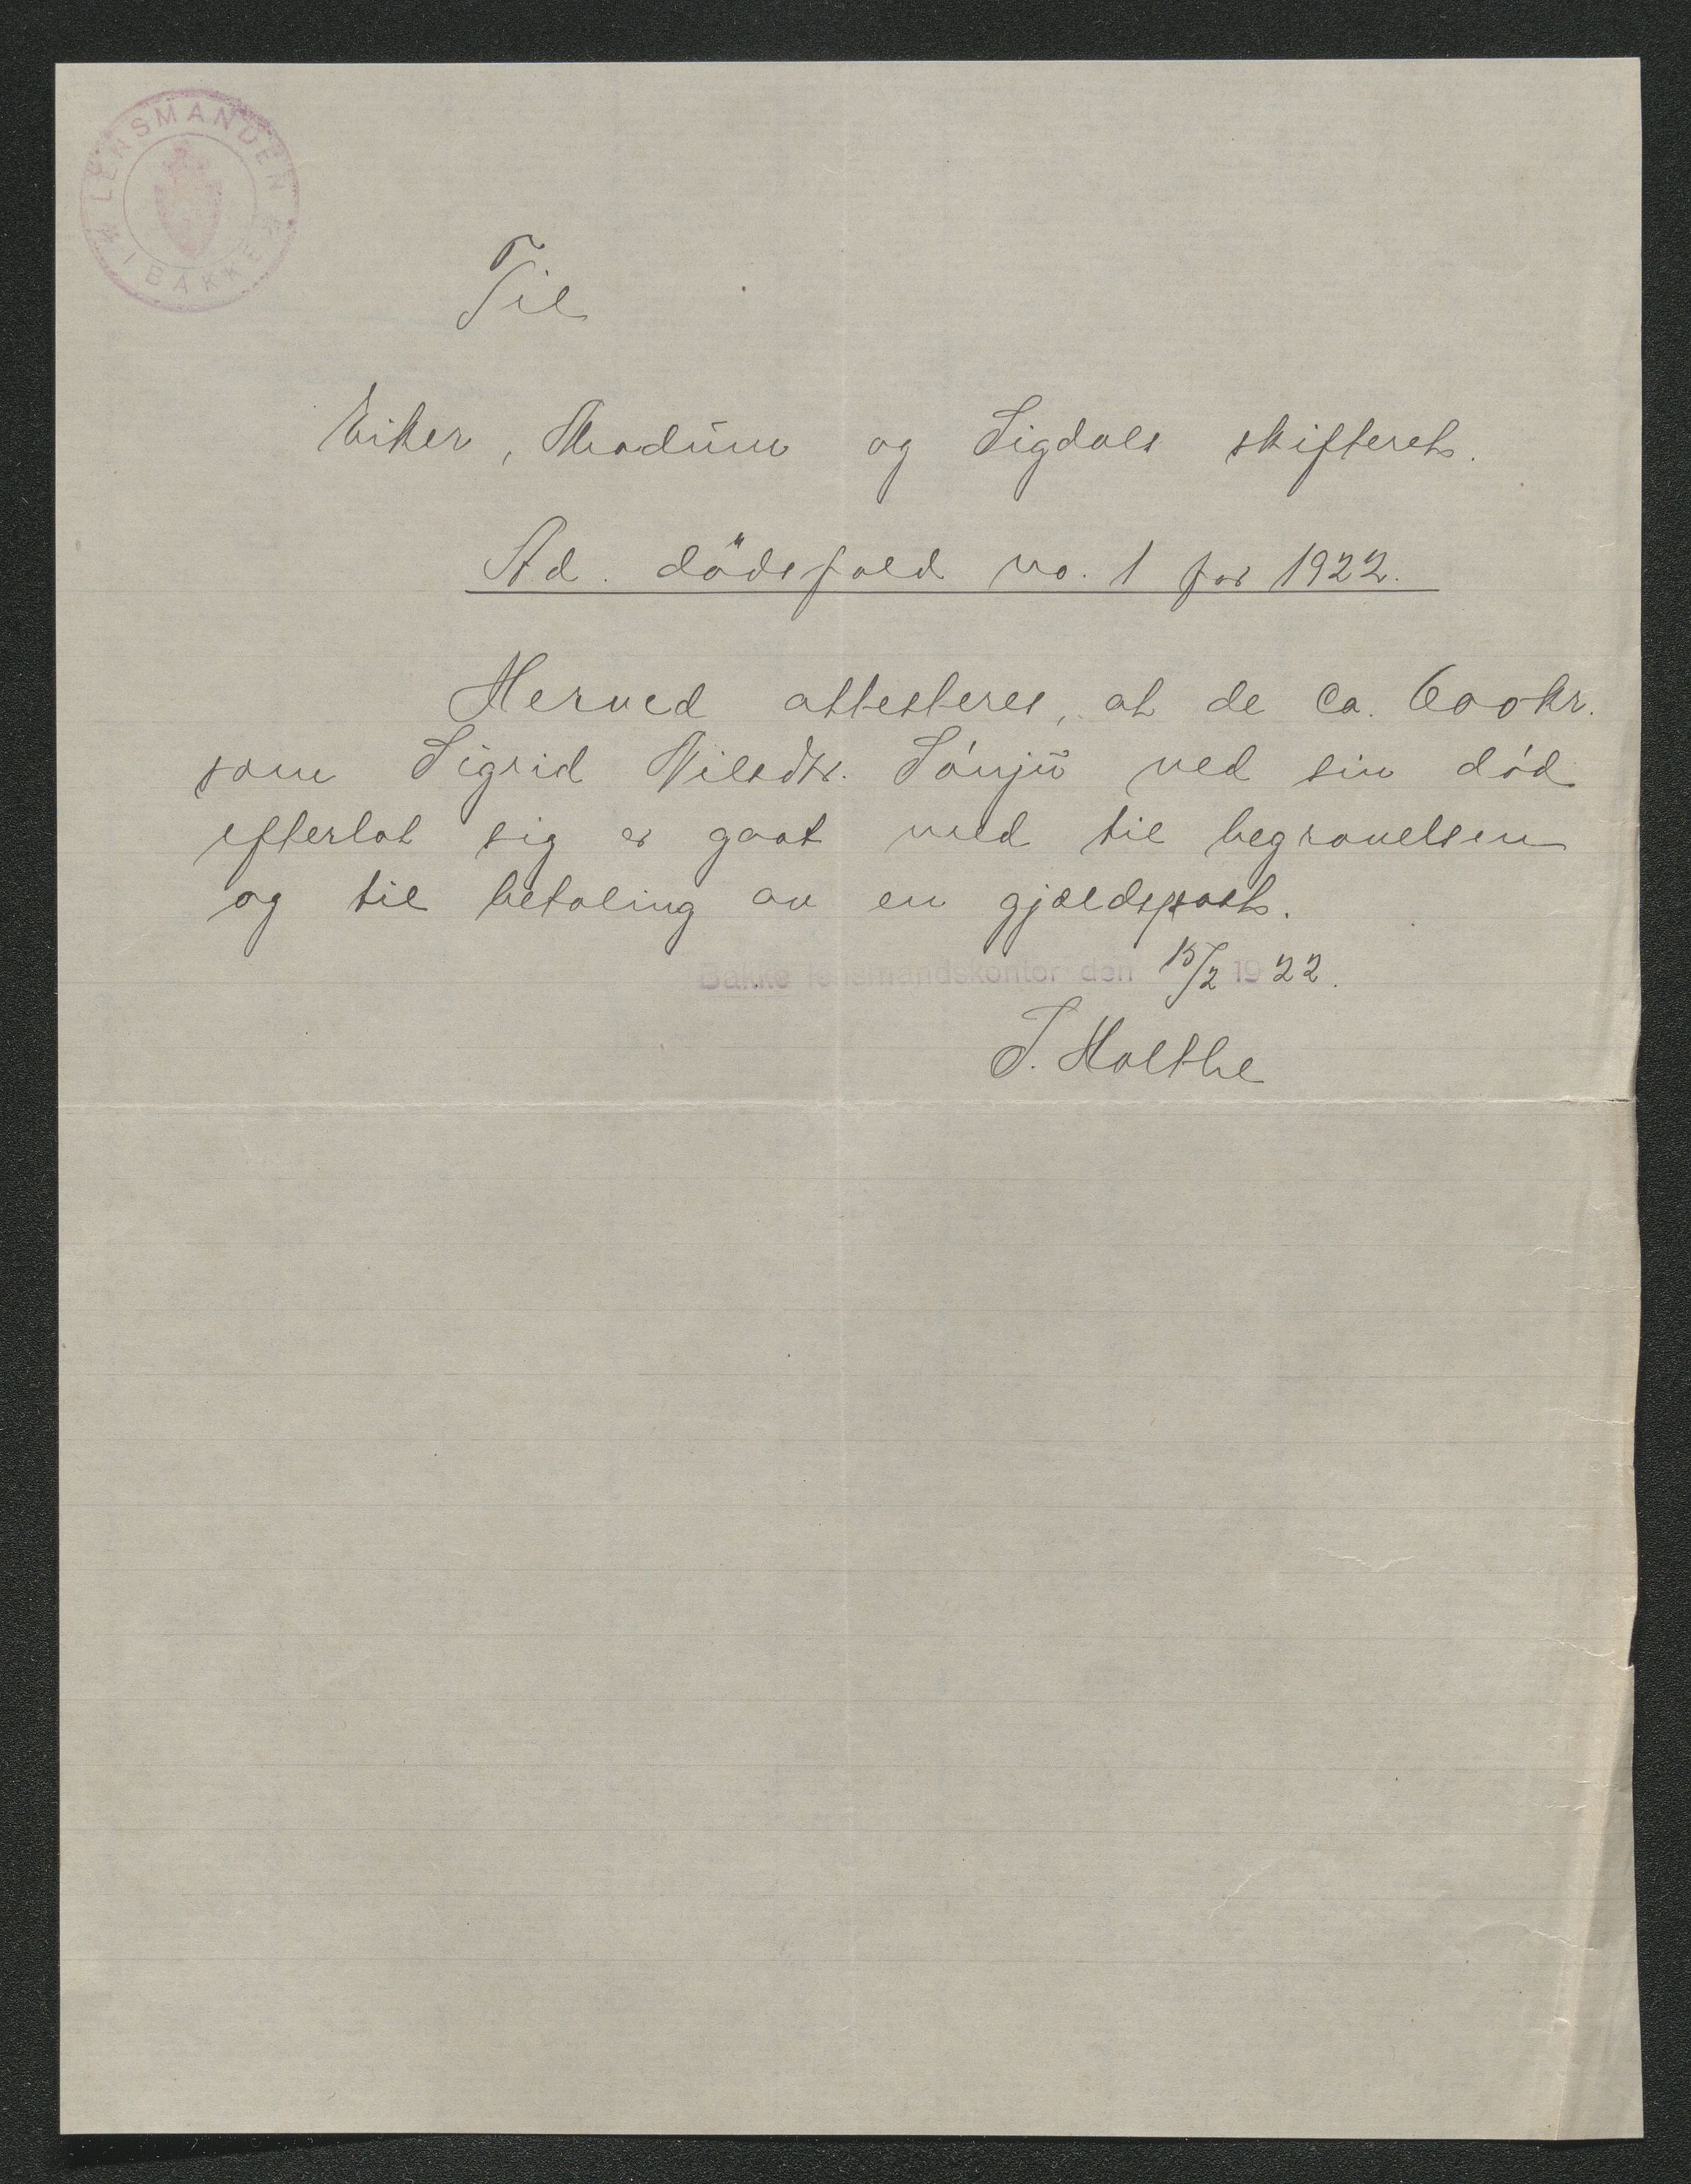 LENSMANDEN
I BAKKE
Til
Eiker, Modum og Sigdals skifteret.
Ad. dødsfald no. 1 for 1922.
Herved attesteres, at de ca. 600 kr.
som Sigrid Nilsdtr. ved sin død
efterlot sig er gaat med til begravelsen
og til betaling av en gjældspost.
Bakke lensmandskontor den 15/2 1922.
J. Holthe